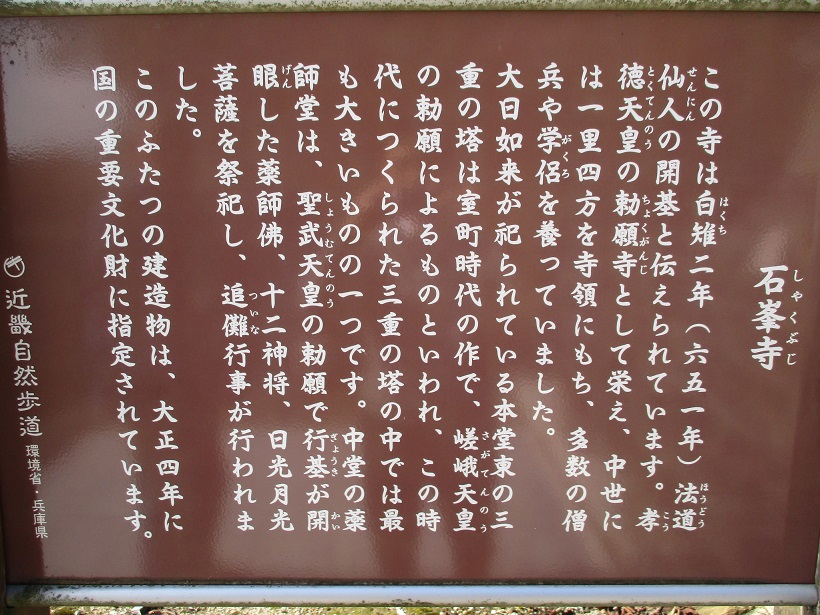 石峯寺
しゃくぶじ
この寺は白雉二年（六五一年）法道
仙人の開基と伝えられています。孝
徳天皇の勅願寺として栄え、中世に
は一里四方を寺領にもち、多数の僧
兵や学侶を養っていました。
大日如来が祀られている本堂東の三
重の塔は室町時代の作で、嵯峨天皇
の勅願によるものといわれ、この時
代につくられた三重の塔の中では最
も大きいものの一つです。中堂の薬
師堂は、聖武天皇の勅願で行基が開
眼した薬師佛、十二神将、日光月光
菩薩を祭祀し、追儺行事が行われま
した。
このふたつの建造物は、大正四年に
国の重要文化財に指定されています。
近畿自然歩道 環境省・兵庫県